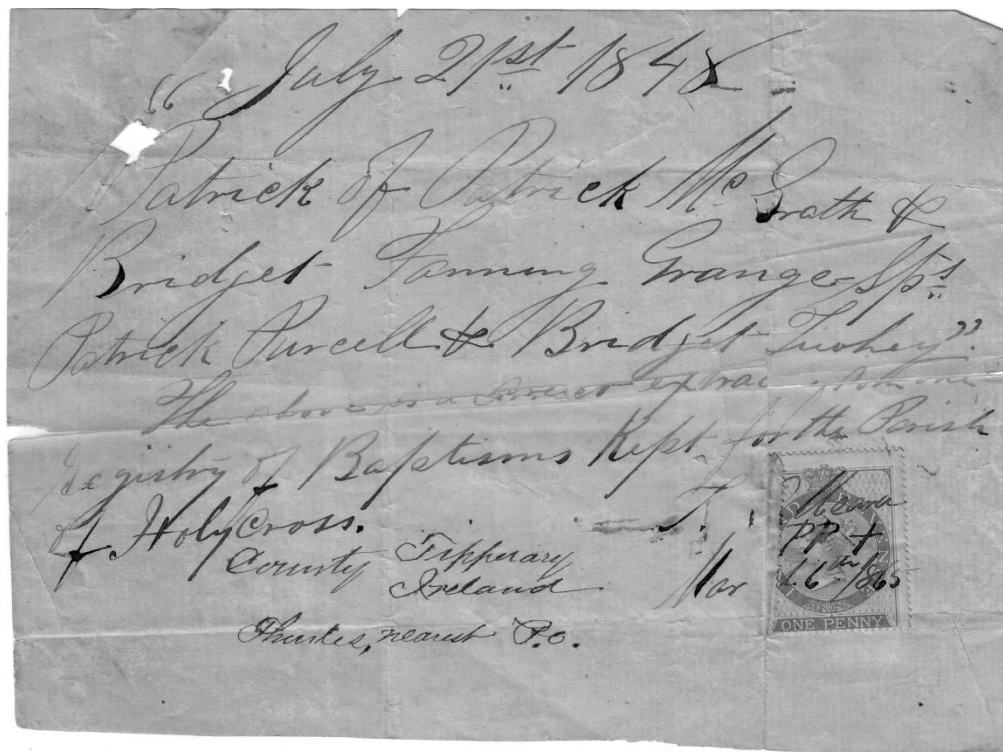 “ July 21st 1848
Patrick of Patrick McGrath &
Bridget Fanning Grange Sps
Patrick Purcell & Bridget Tuohey”.
The above is a correct extract from the
Registry of Baptisms Kept for the Parish
of Holy Cross.
County Tipperary
Ireland
Thurles, nearest P.O.
PP +
Mar 16th /865
ONE PENNY